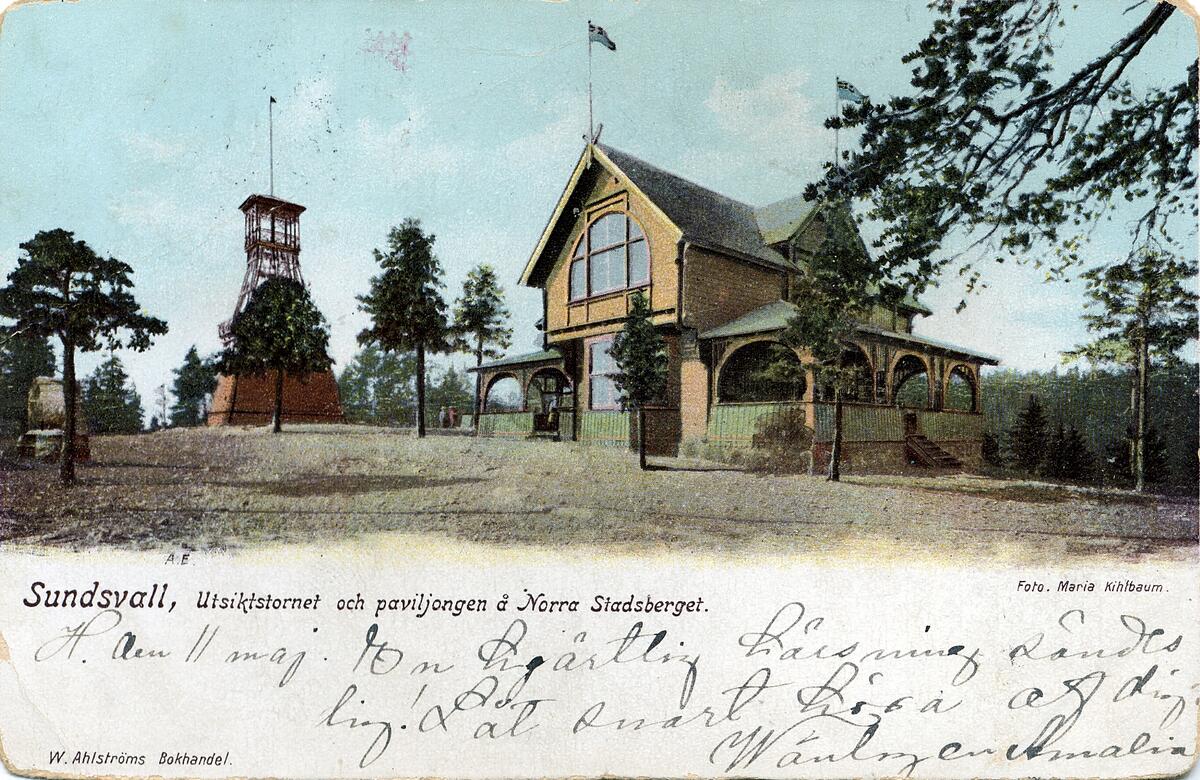 A.E.
Sundsvall, Utsiktstornet och paviljongen å Norra Stadsberget.
Foto. Maria Kihlbaum.
H. den 11 maj. En hjärtlig hälsning sändes
dig! Låt snart höra af dig
Wänligen Amalia
W. Ahlströms Bokhandel.